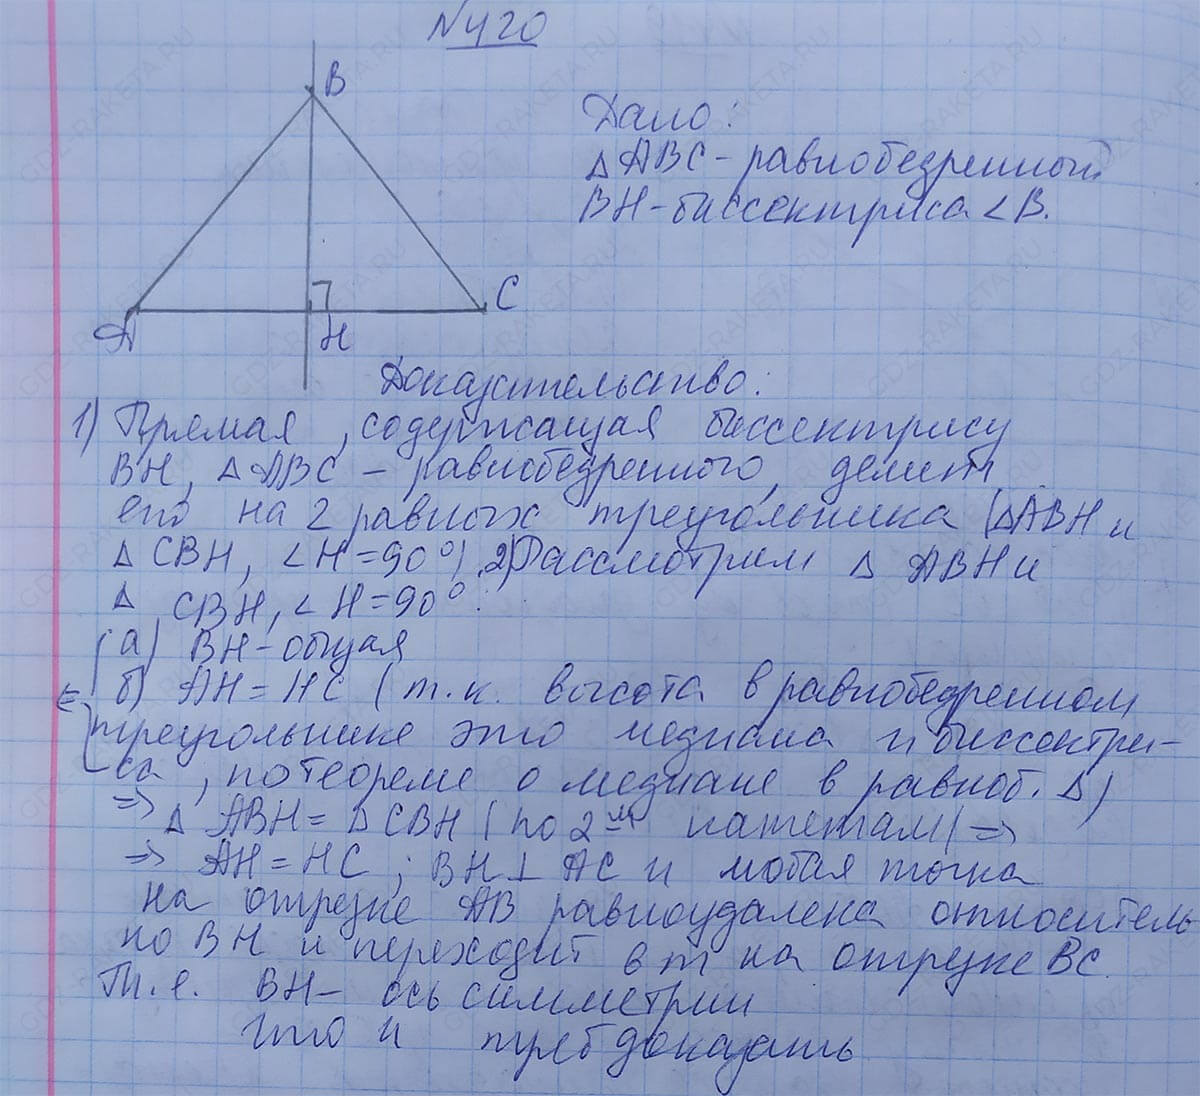 N420
B
Дано:
△ABC - равнобедренный
BH - биссектриса ∠B.
C
A
H
Доказательство:
1) Прямая, содержащая биссектрису
BH, △ABC - равнобедренного, делит
его на 2 равных треугольника (△ABH и
△CBH, ∠H=90°). 2) Рассмотрим △ ABH и
△ CBH, ∠H=90°:
а) BH - общая
б) AH = HC (т.к. высота в равнобедренном
треугольнике это медиана и биссектри-
са, по теореме о медиане в равноб. △)
=> △ ABH = △CBH (по 2-м катетам) =>
=> AH = HC; BH ⊥ AC и любая точка
на отрезке AB равноудалена относитель
но BH и переходит в т на отрезке BC.
Т.е. BH - ось симметрии
что и треб доказать
GDZ-RAKETA.RU